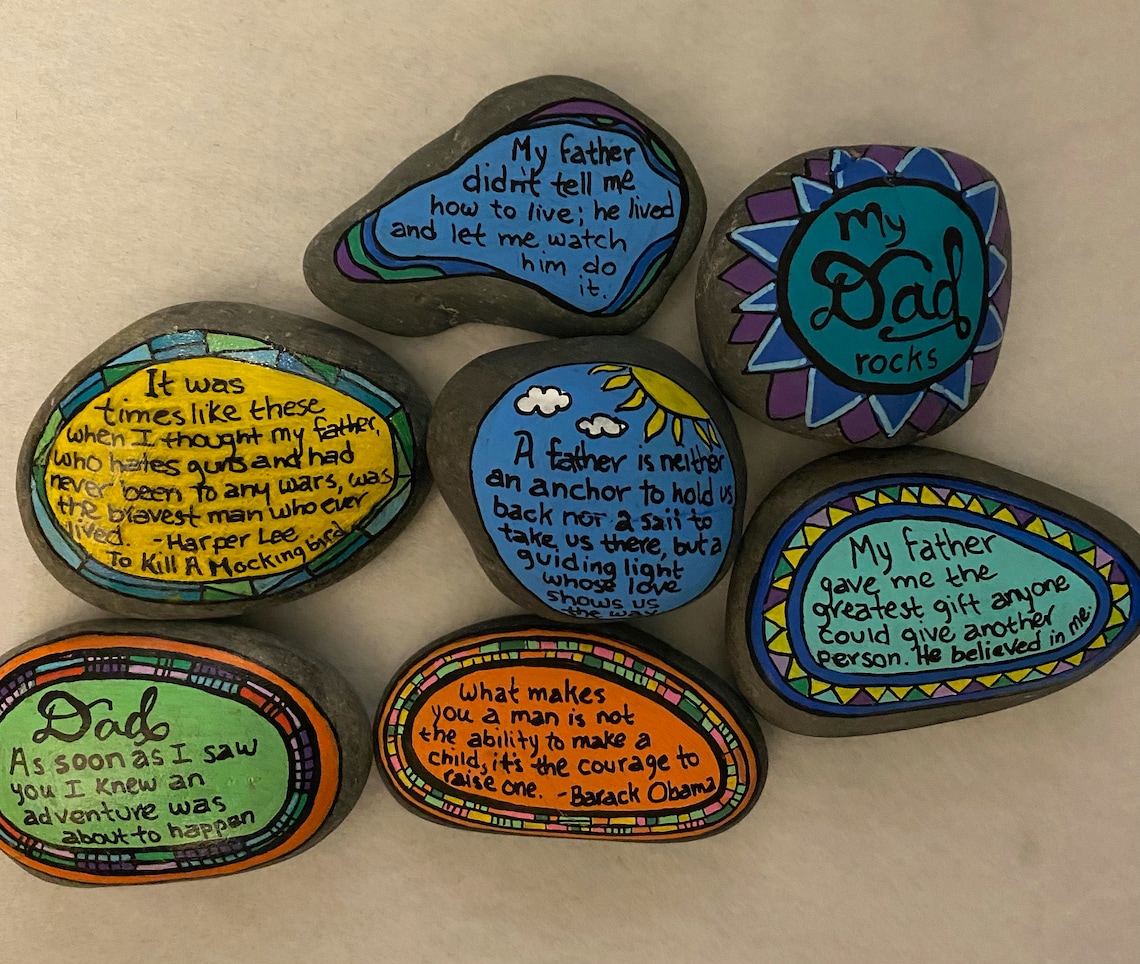 My father
didn't tell me
how to live; he lived
and let me watch
him do
it.
My
Dad
rocks
It was
times like these
when I thought my father,
who hates guns and had
never been to any wars, was
the bravest man who ever
lived. -Harper Lee
To Kill A Mocking bird
A father is neither
an anchor to hold us
back nor a sail to
take us there, but a
guiding light
whose love
shows us
the way
My father
gave me the
greatest gift anyone
could give another
person. He believed in me.
Dad
As soon as I saw
you I knew an
adventure was
about to happen
What makes
you a man is not
the ability to make a
child, it's the courage to
raise one. -Barack Obama